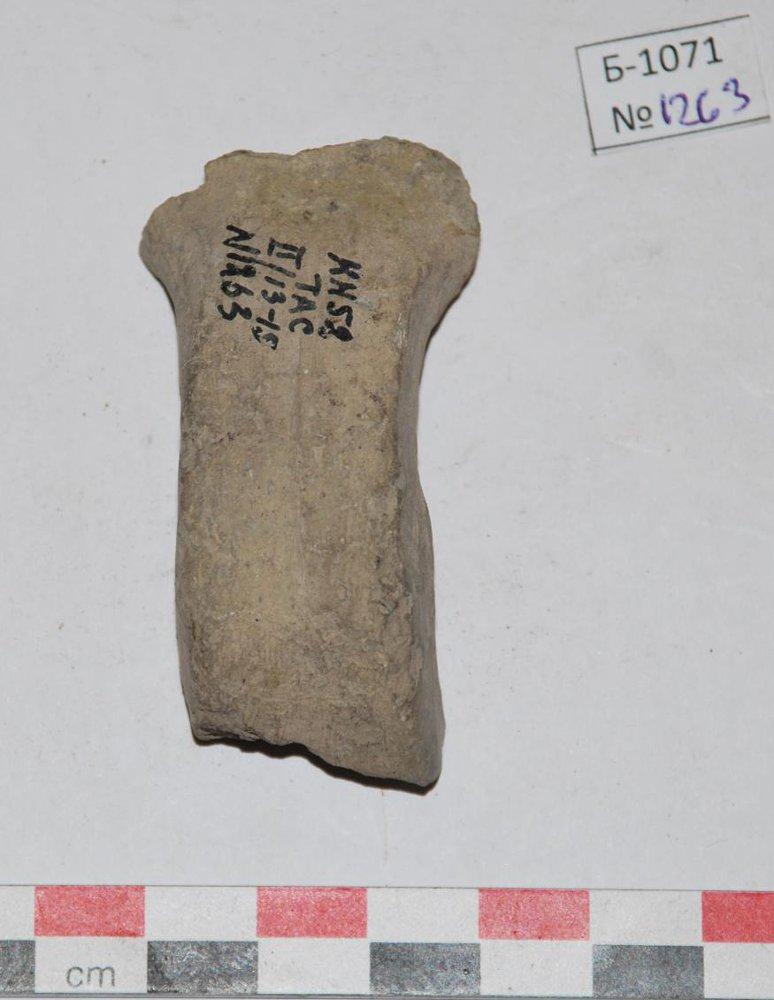 Б-1071
№1263
КН58
ТАС
II/13-15
N1263
cm